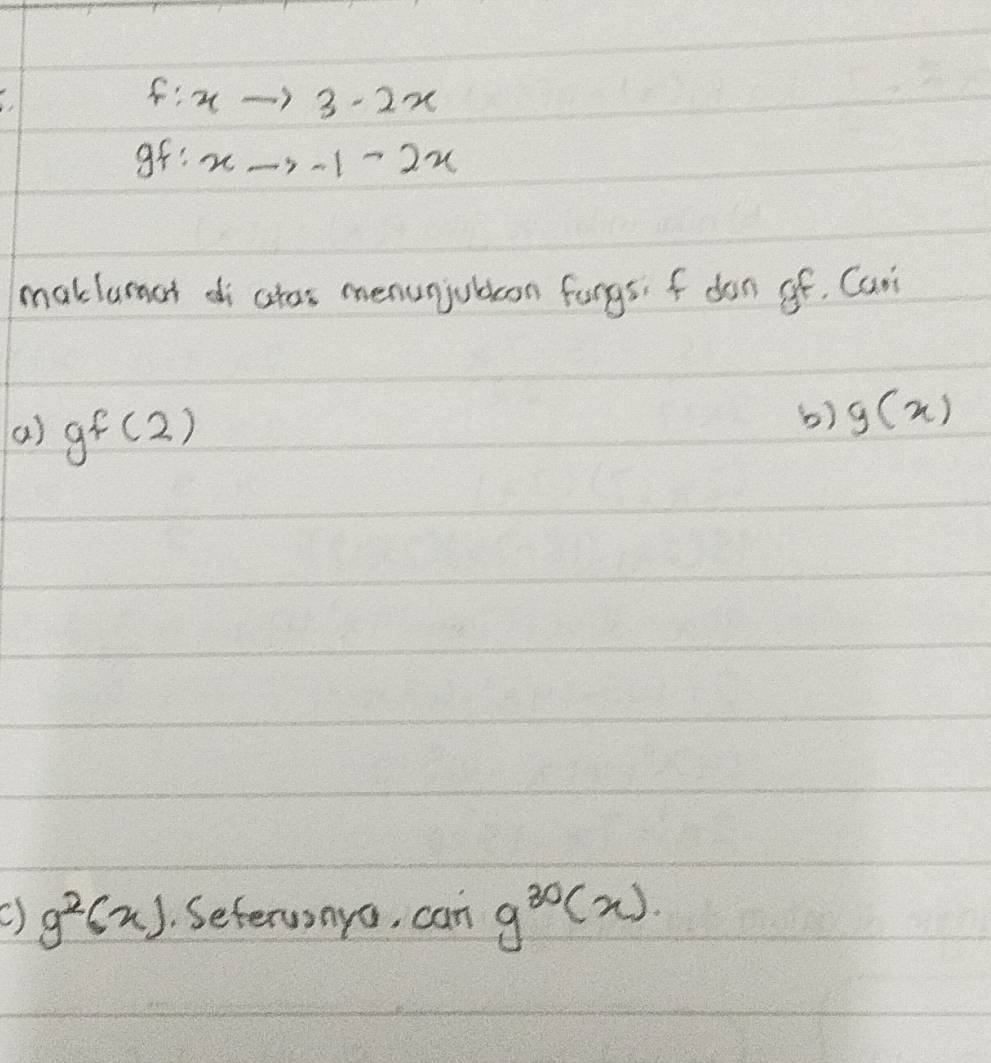 f: x → 3 - 2x
gf: x → -1 - 2x
maklumat di atas menunjukkan fungsi f dan gf. Cari
a) gf(2)
b) g(x)
c) g²(x). Seterusnya, cari g³⁰(x).